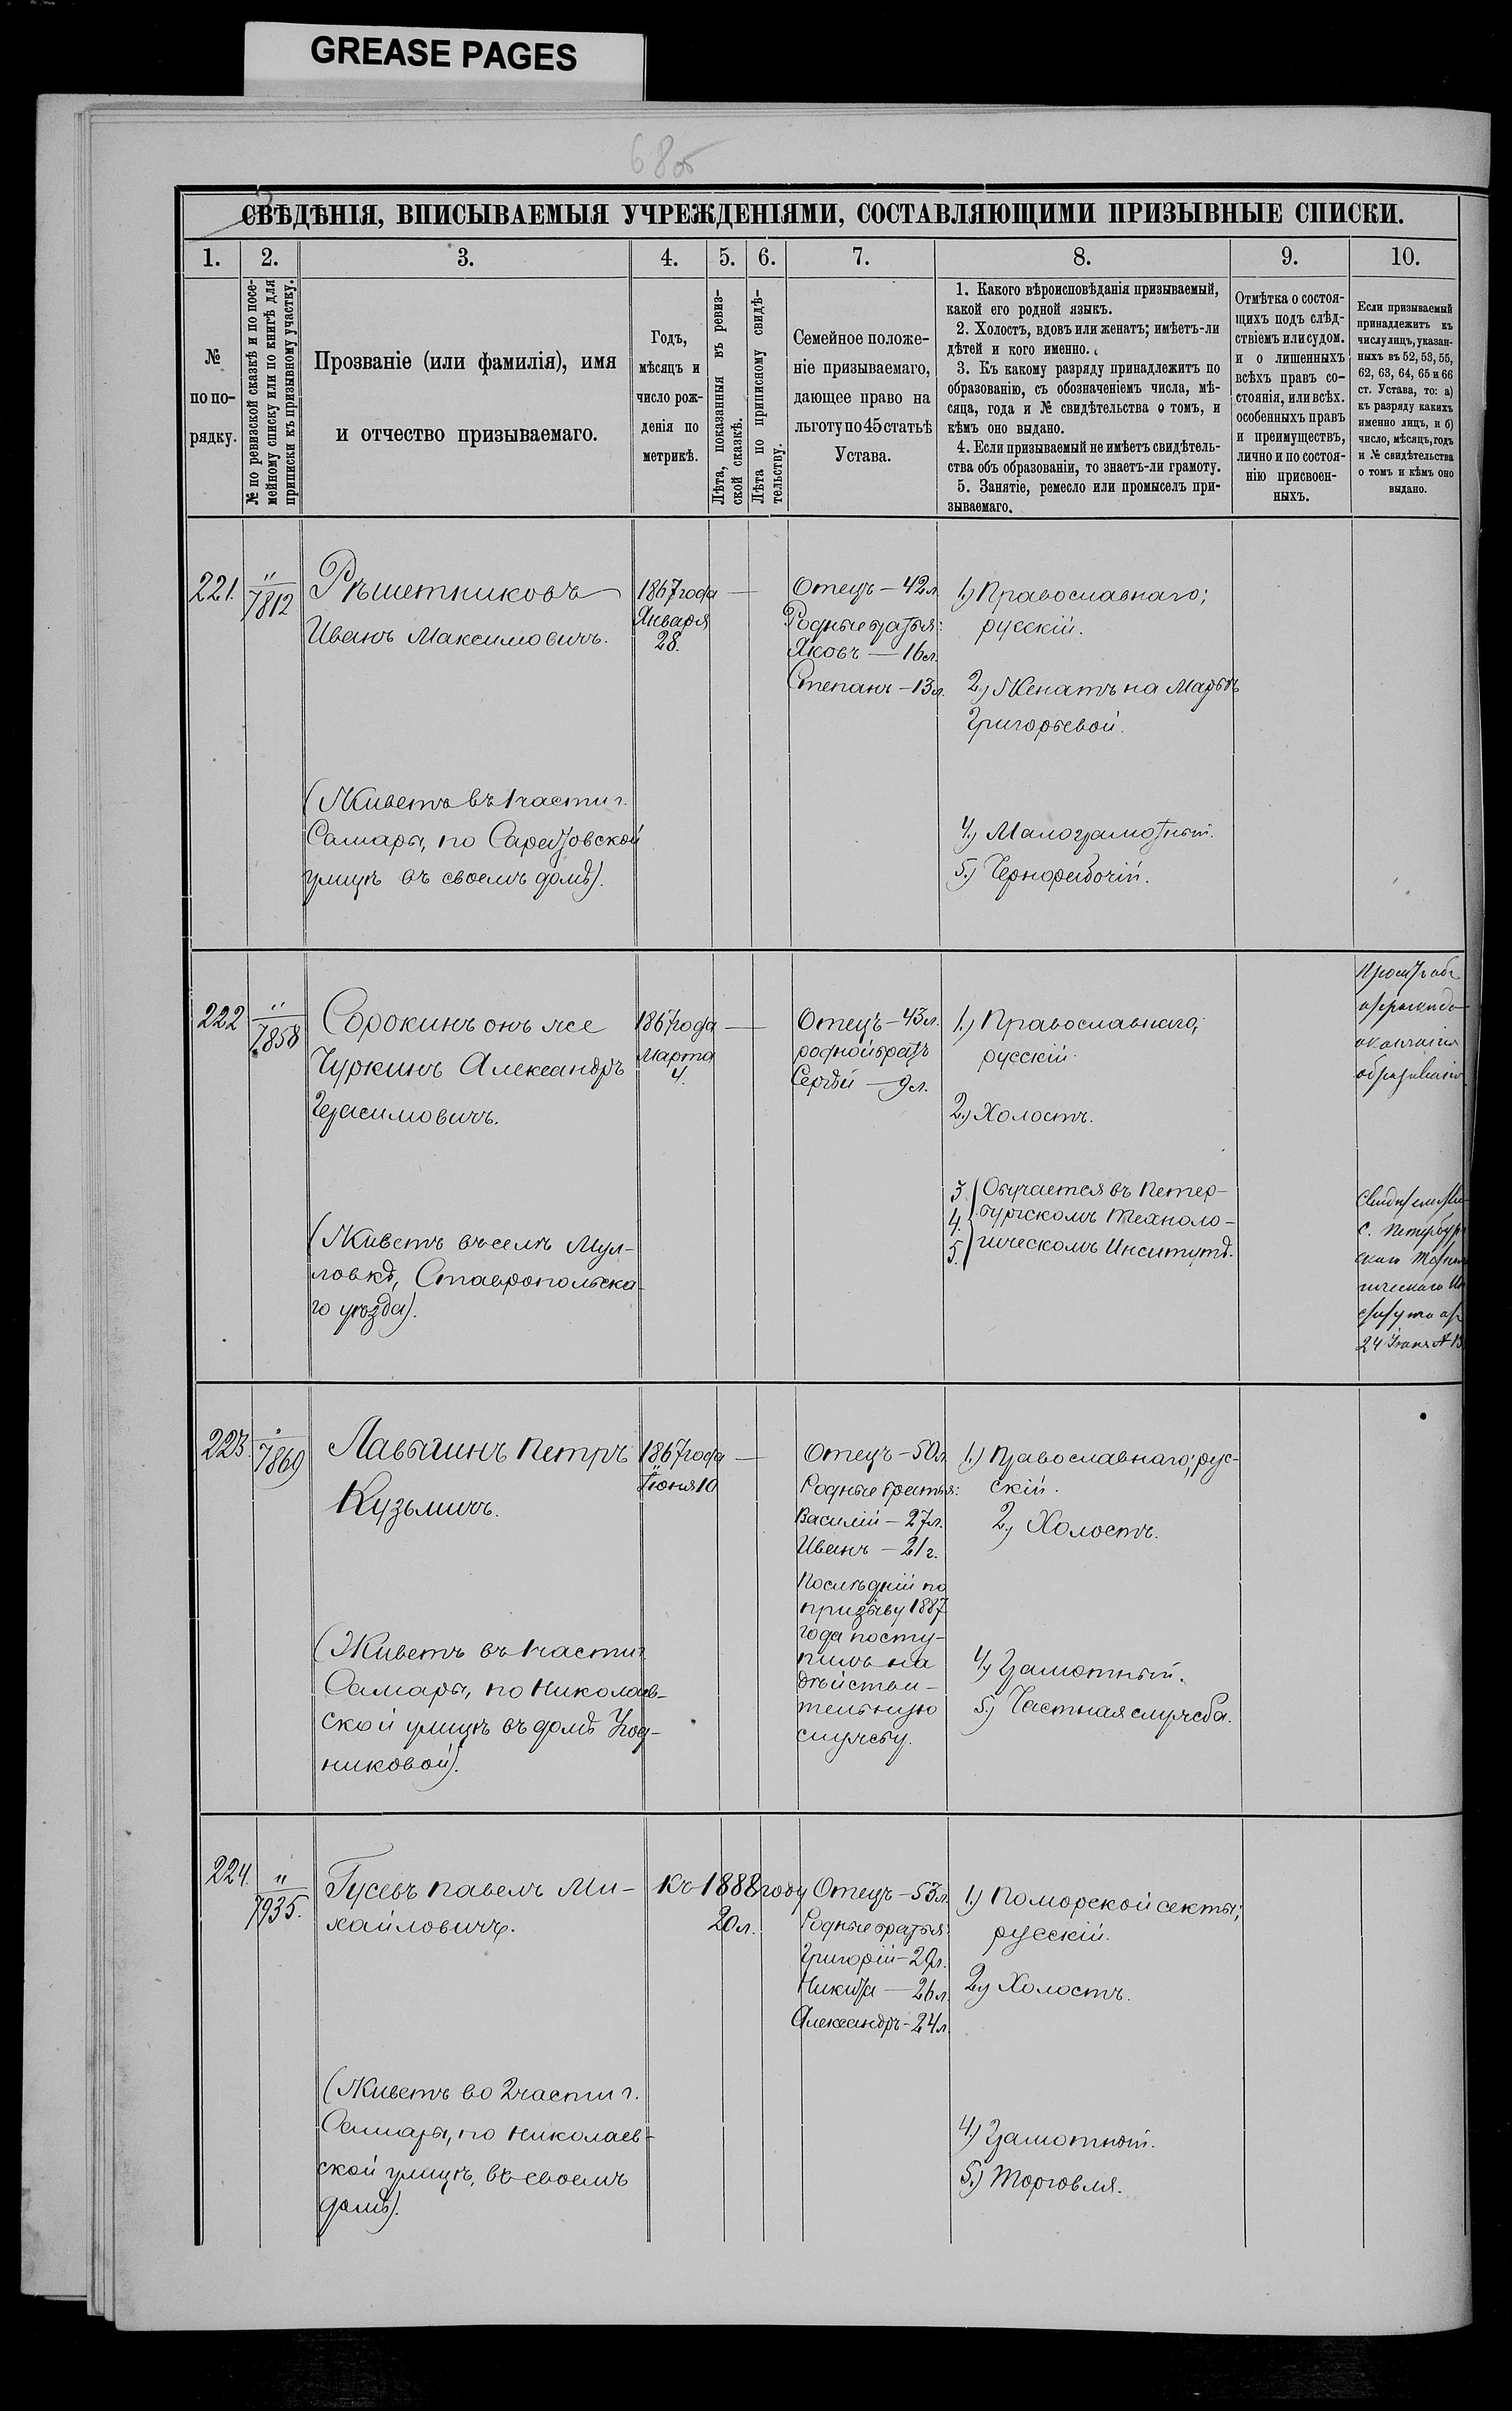 GREASE PAGES
68об
СВѢДѢНІЯ, ВПИСЫВАЕМЫЯ УЧРЕЖДЕНІЯМИ, СОСТАВЛЯЮЩИМИ ПРИЗЫВНЫЕ СПИСКИ.
1. 2. 3. 4. 5. 6. 7. 8. 9. 10.
№
по по-
рядку.
№ по ревизской сказкѣ и по посе-
мейному списку или по книгѣ для
приписки къ призывному участку.
Прозваніе (или фамилія), имя
и отчество призываемаго.
Годъ,
мѣсяцъ и
число рож-
денія по
метрикѣ.
Лѣта, показанныя въ ревиз-
ской сказкѣ.
Лѣта по приписному свидѣ-
тельству.
Семейное положе-
ніе призываемаго,
дающее право на
льготу по 45 статьѣ
Устава.
1. Какого вѣроисповѣданія призываемый,
какой его родной языкъ.
2. Холостъ, вдовъ или женатъ; имѣетъ-ли
дѣтей и кого именно.
3. Къ какому разряду принадлежитъ по
образованію, съ обозначеніемъ числа, мѣ-
сяца, года и № свидѣтельства о томъ, и
кѣмъ оно выдано.
4. Если призываемый не имѣетъ свидѣтель-
ства объ образованіи, то знаетъ-ли грамоту.
5. Занятіе, ремесло или промыселъ при-
зываемаго.
Отмѣтка о состоя-
щихъ подъ слѣд-
ствіемъ или судом.
и о лишенныхъ
всѣхъ правъ со-
стоянія, или всѣх.
особенныхъ правъ
и преимуществъ,
лично и по состоя-
нію присвоен-
ныхъ.
Если призываемый
принадлежитъ къ
числу лицъ, указан-
ныхъ въ 52, 53, 55,
62, 63, 64, 65 и 66
ст. Устава, то: а)
къ разряду какихъ
именно лицъ, и б)
число, мѣсяцъ, годъ
и № свидѣтельства
о томъ и кѣмъ оно
выдано.
221.
"
7812
Рѣшетниковъ
Иванъ Максимовичъ.
(Живетъ въ 1 части г.
Самары, по Саратовской
улицѣ въ своемъ домѣ).
1867 года
Января
28.
Отецъ — 42 л.
Родные братья:
Яковъ — 16 л.
Степанъ — 13 л.
1.) Православнаго;
русскій.
2.) Женатъ на Марьѣ
Григорьевой.
4.) Малограмотный.
5.) Чернорабочій.
222
"
7858
Сорокинъ онъ же
Чуркинъ Александръ
Герасимовичъ.
(Живетъ въ селѣ Мул-
ловкѣ, Ставропольска-
го уѣзда).
1867 года
Марта
4.
Отецъ — 43 л.
родной братъ
Сергѣй — 9 л.
1.) Православнаго;
русскій.
2.) Холостъ.
3.
4.
5.
Обучается въ Петер-
бургскомъ Техноло-
гическомъ Институтѣ.
окончанія
образованія
С. Петербург
24 № 13
223.
"
7869
Лавыгинъ Петръ
Кузьмичъ.
(Живетъ въ 1 части г.
Самары, по Николаев-
ской улицѣ въ домѣ Уґод-
никовой).
1867 года
Іюня 10
Отецъ — 50 л.
Родные братья:
Василій — 27 л.
Иванъ — 21 г.
Послѣдній по
призыву 1887
года посту-
пилъ на
дѣйстви-
тельную
службу.
1.) Православнаго; рус-
скій.
2.) Холостъ.
4.) Грамотный.
5.) Частная служба.
224.
"
7935.
Гусевъ Павелъ Ми-
хайловичъ.
(Живетъ во 2 части г.
Самары, по Николаев-
ской улицѣ, въ своемъ
домѣ).
Къ 1888 году
20 л.
Отецъ — 53 л.
Родные братья:
Григорій — 29 л.
Никита — 26 л.
Александръ — 24 л.
1.) Поморской секты;
русскій.
2.) Холостъ.
4.) Грамотный.
5.) Торговля.